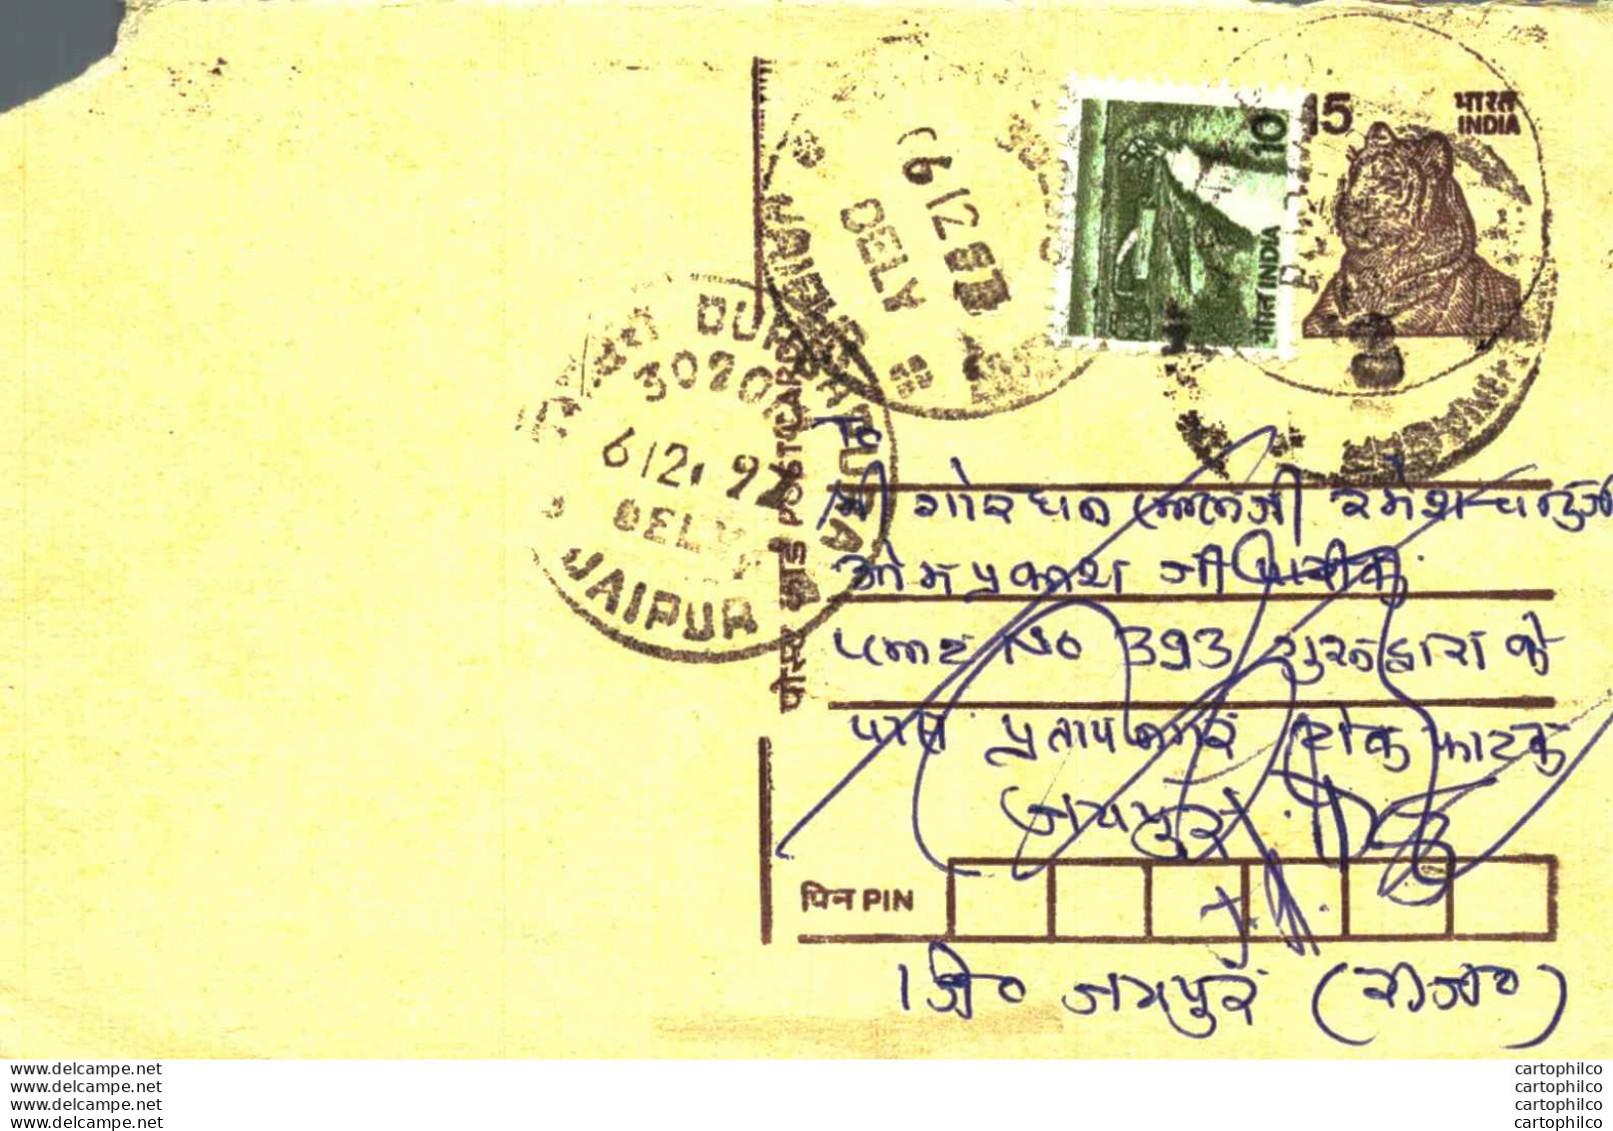 15
भारत
INDIA
10
भारत INDIA
6 12 92
DELY
DUR
3020
6 12. 92
DELY
JAIPUR
पोस्ट कार्ड POST CARD
To
श्री गोरधन लालजी रमेश चन्दजी
ओमप्रकाश जी
प्लाट No 393 गुरूद्वारा के
पास प्रताप नगर टोंक फाटक
जयपुर
पिन PIN
जि० जयपुर (राज०)
www.delcampe.net
www.delcampe.net
www.delcampe.net
www.delcampe.net
cartophilco
cartophilco
cartophilco
cartophilco